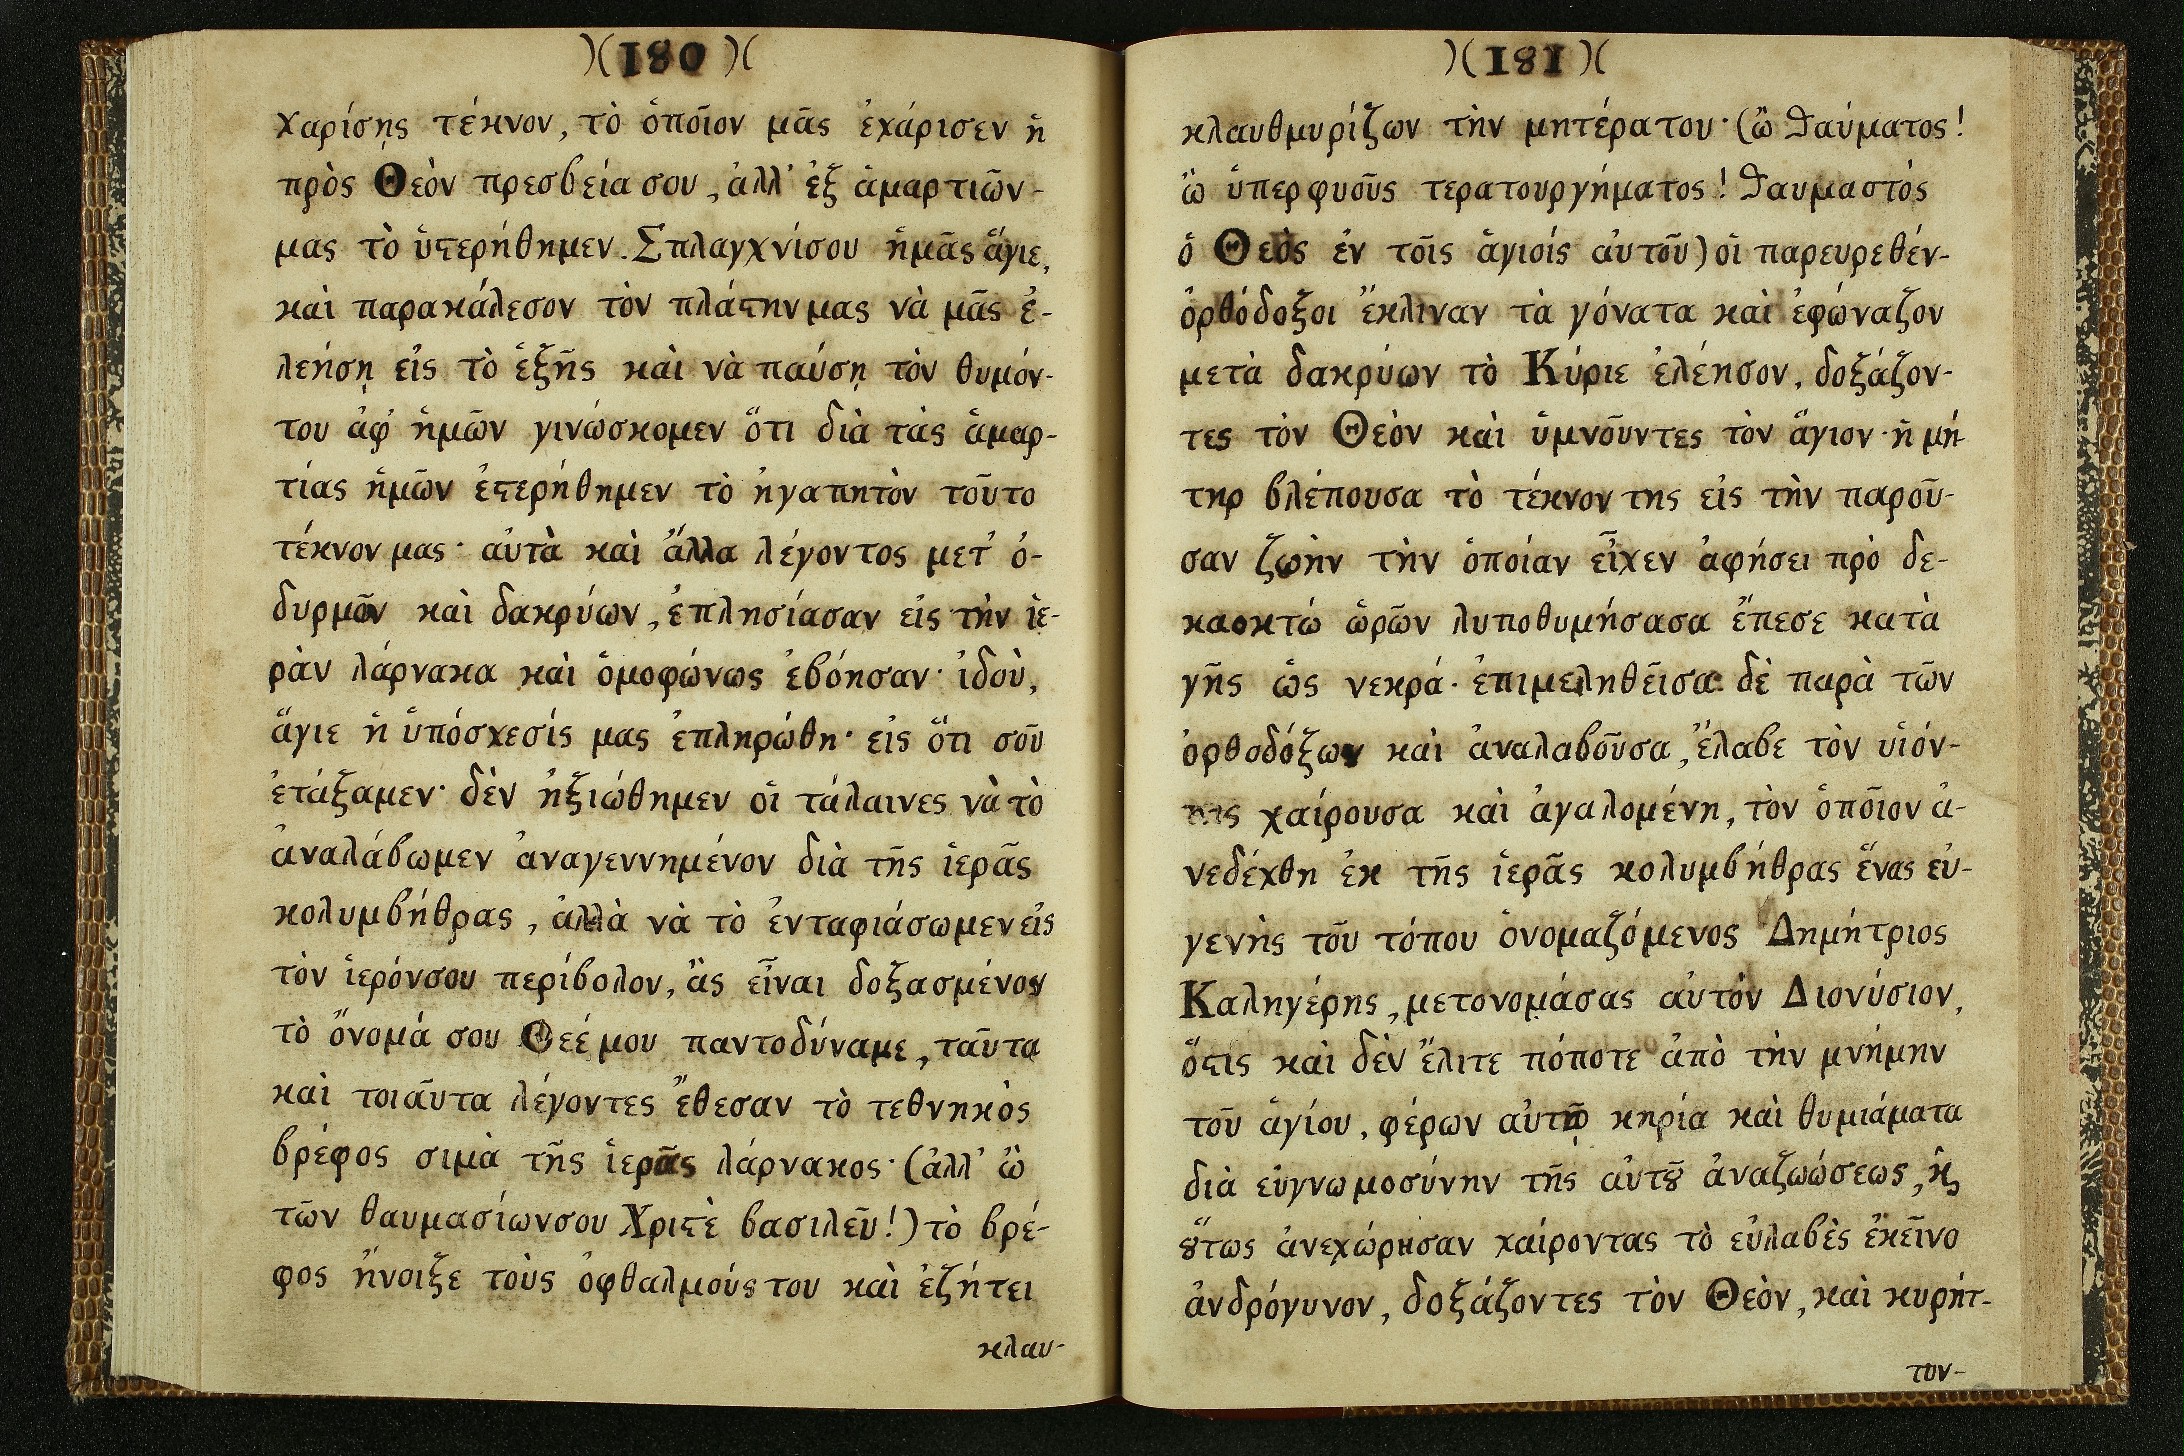 )( 180 )(
χαρίσῃς τέκνον, τὸ ὁποῖον μᾶς ἐχάρισεν ἡ
πρὸς Θεὸν πρεσβεία σου, ἀλλ' ἐξ ἁμαρτιῶν-
μας τὸ ὑϛερήθημεν. Σπλαγχνίσου ἡμᾶς ἅγιε,
καὶ παρακάλεσον τὸν πλάϛην μας νὰ μᾶς ἐ-
λεήσῃ εἰς τὸ ἑξῆς καὶ νὰ παύσῃ τὸν θυμόν-
του ἀφ' ἡμῶν γινώσκομεν ὅτι διὰ τὰς ἁμαρ-
τίας ἡμῶν ἐϛερήθημεν τὸ ἠγαπητὸν τοῦτο
τέκνον μας· αὐτὰ καὶ ἄλλα λέγοντος μετ' ὀ-
δυρμῶν καὶ δακρύων, ἐπλησίασαν εἰς τὴν ἱε-
ρὰν λάρνακα καὶ ὁμοφώνως ἐβόησαν· ἰδοὺ,
ἅγιε ἡ ὑπόσχεσίς μας ἐπληρώθη· εἰς ὅτι σοῦ
ἐτάξαμεν· δὲν ἠξιώθημεν οἱ τάλαινες νὰ τὸ
ἀναλάβωμεν ἀναγεννημένον διὰ τῆς ἱερᾶς
κολυμβήθρας, ἀλλὰ νὰ τὸ ἐνταφιάσωμεν εἰς
τὸν ἱερόνσου περίβολον, ἂς εἶναι δοξασμένον
τὸ ὄνομά σου Θεέ μου παντοδύναμε, ταῦτα
καὶ τοιαῦτα λέγοντες ἔθεσαν τὸ τεθνηκὸς
βρέφος σιμὰ τῆς ἱερᾶς λάρνακος· (ἀλλ' ὢ
τῶν θαυμασίωνσου Χριϛὲ βασιλεῦ!) τὸ βρέ-
φος ἤνοιξε τοὺς ὀφθαλμούς του καὶ ἐζήτει
κλαυ-
)( 181 )(
κλαυθμυρίζων τὴν μητέρατου· (ὢ ϑαύματος!
ὢ ὑπερφυοῦς τερατουργήματος! ϑαυμαστὸς
ὁ Θεὸς ἐν τοῖς ἁγιοίς αὐτοῦ) οἱ παρευρεθέν-
ὀρθόδοξοι ἔκλιναν τὰ γόνατα καὶ ἐφώναζον
μετὰ δακρύων τὸ Κύριε ἐλέησον, δοξάζον-
τες τὸν Θεὸν καὶ ὑμνοῦντες τὸν ἅγιον· ἡ μή
τηρ βλέπουσα τὸ τέκνον της εἰς τὴν παροῦ-
σαν ζωὴν τὴν ὁποίαν εἶχεν ἀφήσει πρὸ δε-
καοκτώ ὡρῶν λυποθυμήσασα ἔπεσε κατὰ
γῆς ὡς νεκρά· ἐπιμεληθεῖσα δὲ παρὰ τῶν
ὀρθοδόξων καὶ ἀναλαβοῦσα, ἔλαβε τὸν υἱόν-
της χαίρουσα καὶ ἀγαλομένη, τὸν ὁποῖον ἀ-
νεδέχθη ἐκ τῆς ἱερᾶς κολυμβήθρας ἕνας εὐ-
γενὴς τοῦ τόπου ὀνομαζόμενος Δημήτριος
Καληγέρης, μετονομάσας αὐτὸν Διονύσιον,
ὅϛις καὶ δὲν ἔλιτε πόποτε ἀπὸ τὴν μνήμην
τοῦ ἁγίου, φέρων αὐτῷ κηρία καὶ θυμιάματα
διὰ εὐγνωμοσύνην τῆς αὐτȣ͂ ἀναζωώσεως, ϗ
ȣ̔́τως ἀνεχώρησαν χαίροντας τὸ εὐλαβὲς ἐκεῖνο
ἀνδρόγυνον, δοξάζοντες τὸν Θεὸν, καὶ κυρήτ-
τον-